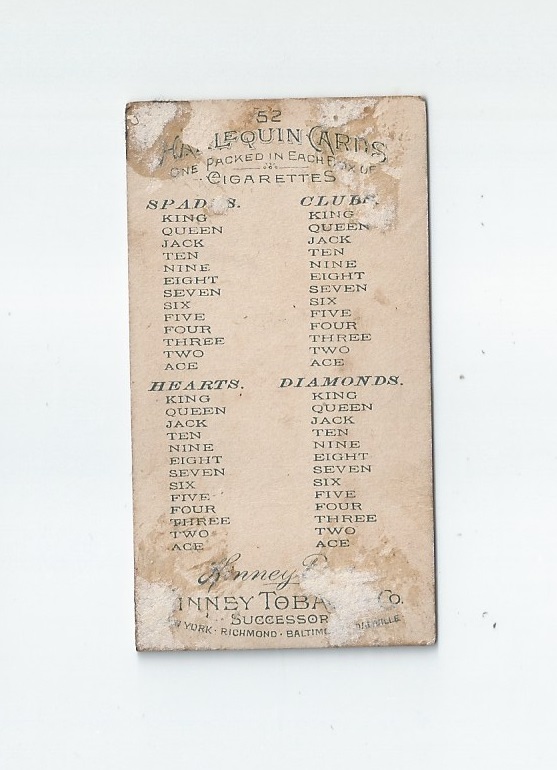 52
HARLEQUIN CARDS
ONE PACKED IN EACH BOX OF
CIGARETTES
SPADES.
KING
QUEEN
JACK
TEN
NINE
EIGHT
SEVEN
SIX
FIVE
FOUR
THREE
TWO
ACE
CLUBS.
KING
QUEEN
JACK
TEN
NINE
EIGHT
SEVEN
SIX
FIVE
FOUR
THREE
TWO
ACE
HEARTS.
KING
QUEEN
JACK
TEN
NINE
EIGHT
SEVEN
SIX
FIVE
FOUR
THREE
TWO
ACE
DIAMONDS.
KING
QUEEN
JACK
TEN
NINE
EIGHT
SEVEN
SIX
FIVE
FOUR
THREE
TWO
ACE
Kinney
KINNEY TOBACCO Co.
SUCCESSOR
YORK · RICHMOND · BALTIM